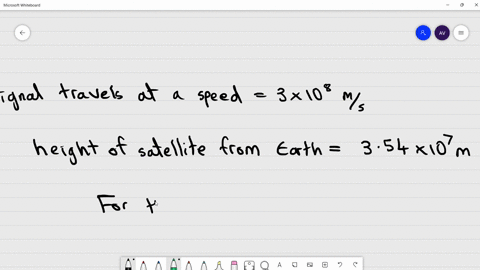 Microsoft Whiteboard
AV
ignal travels at a speed = 3×10⁸ m/s
height of satellite from Earth = 3.54 ×10⁷ m
For t